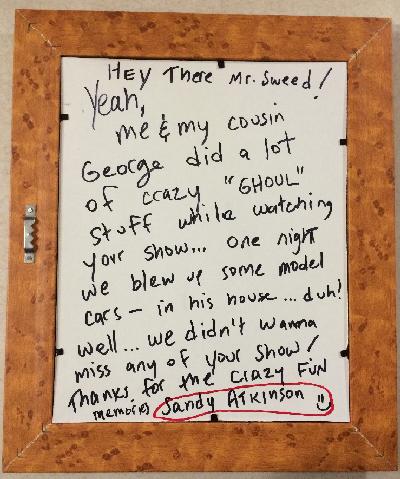 HEY THERE Mr. Sweed!
Yeah,
me & my cousin
George did a lot
of crazy "GHOUL"
stuff while watching
your show... one night
we blew up some model
cars - in his house... duh!
well... we didn't wanna
miss any of your show!
Thanks for the crazy FUN
memories Sandy Atkinson